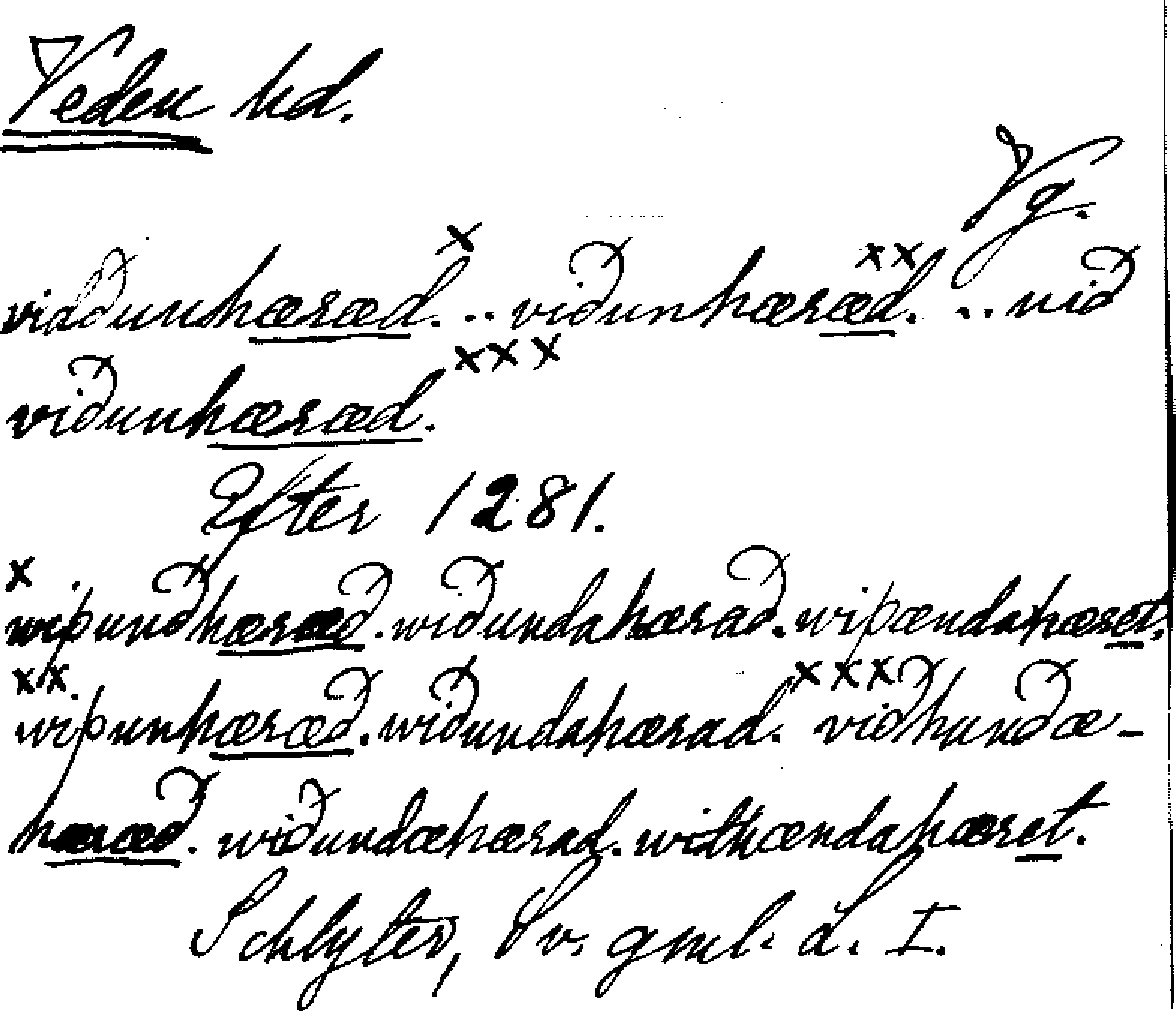 Veden hd.
Vg.
x xx
viddunhæræd. .. viðunhæræd. .. við
xxx
viðunhæræd.
Efter 1281.
x
wiþunðhæræð. wiðundahærað. wiþændahæret.
xx. xxx
wiþunhæræð. wiðundahærad. viðhundæ-
hæræð. wiðundæhærad. withændahæret.
Schlyter, Sv. gml. L. I.